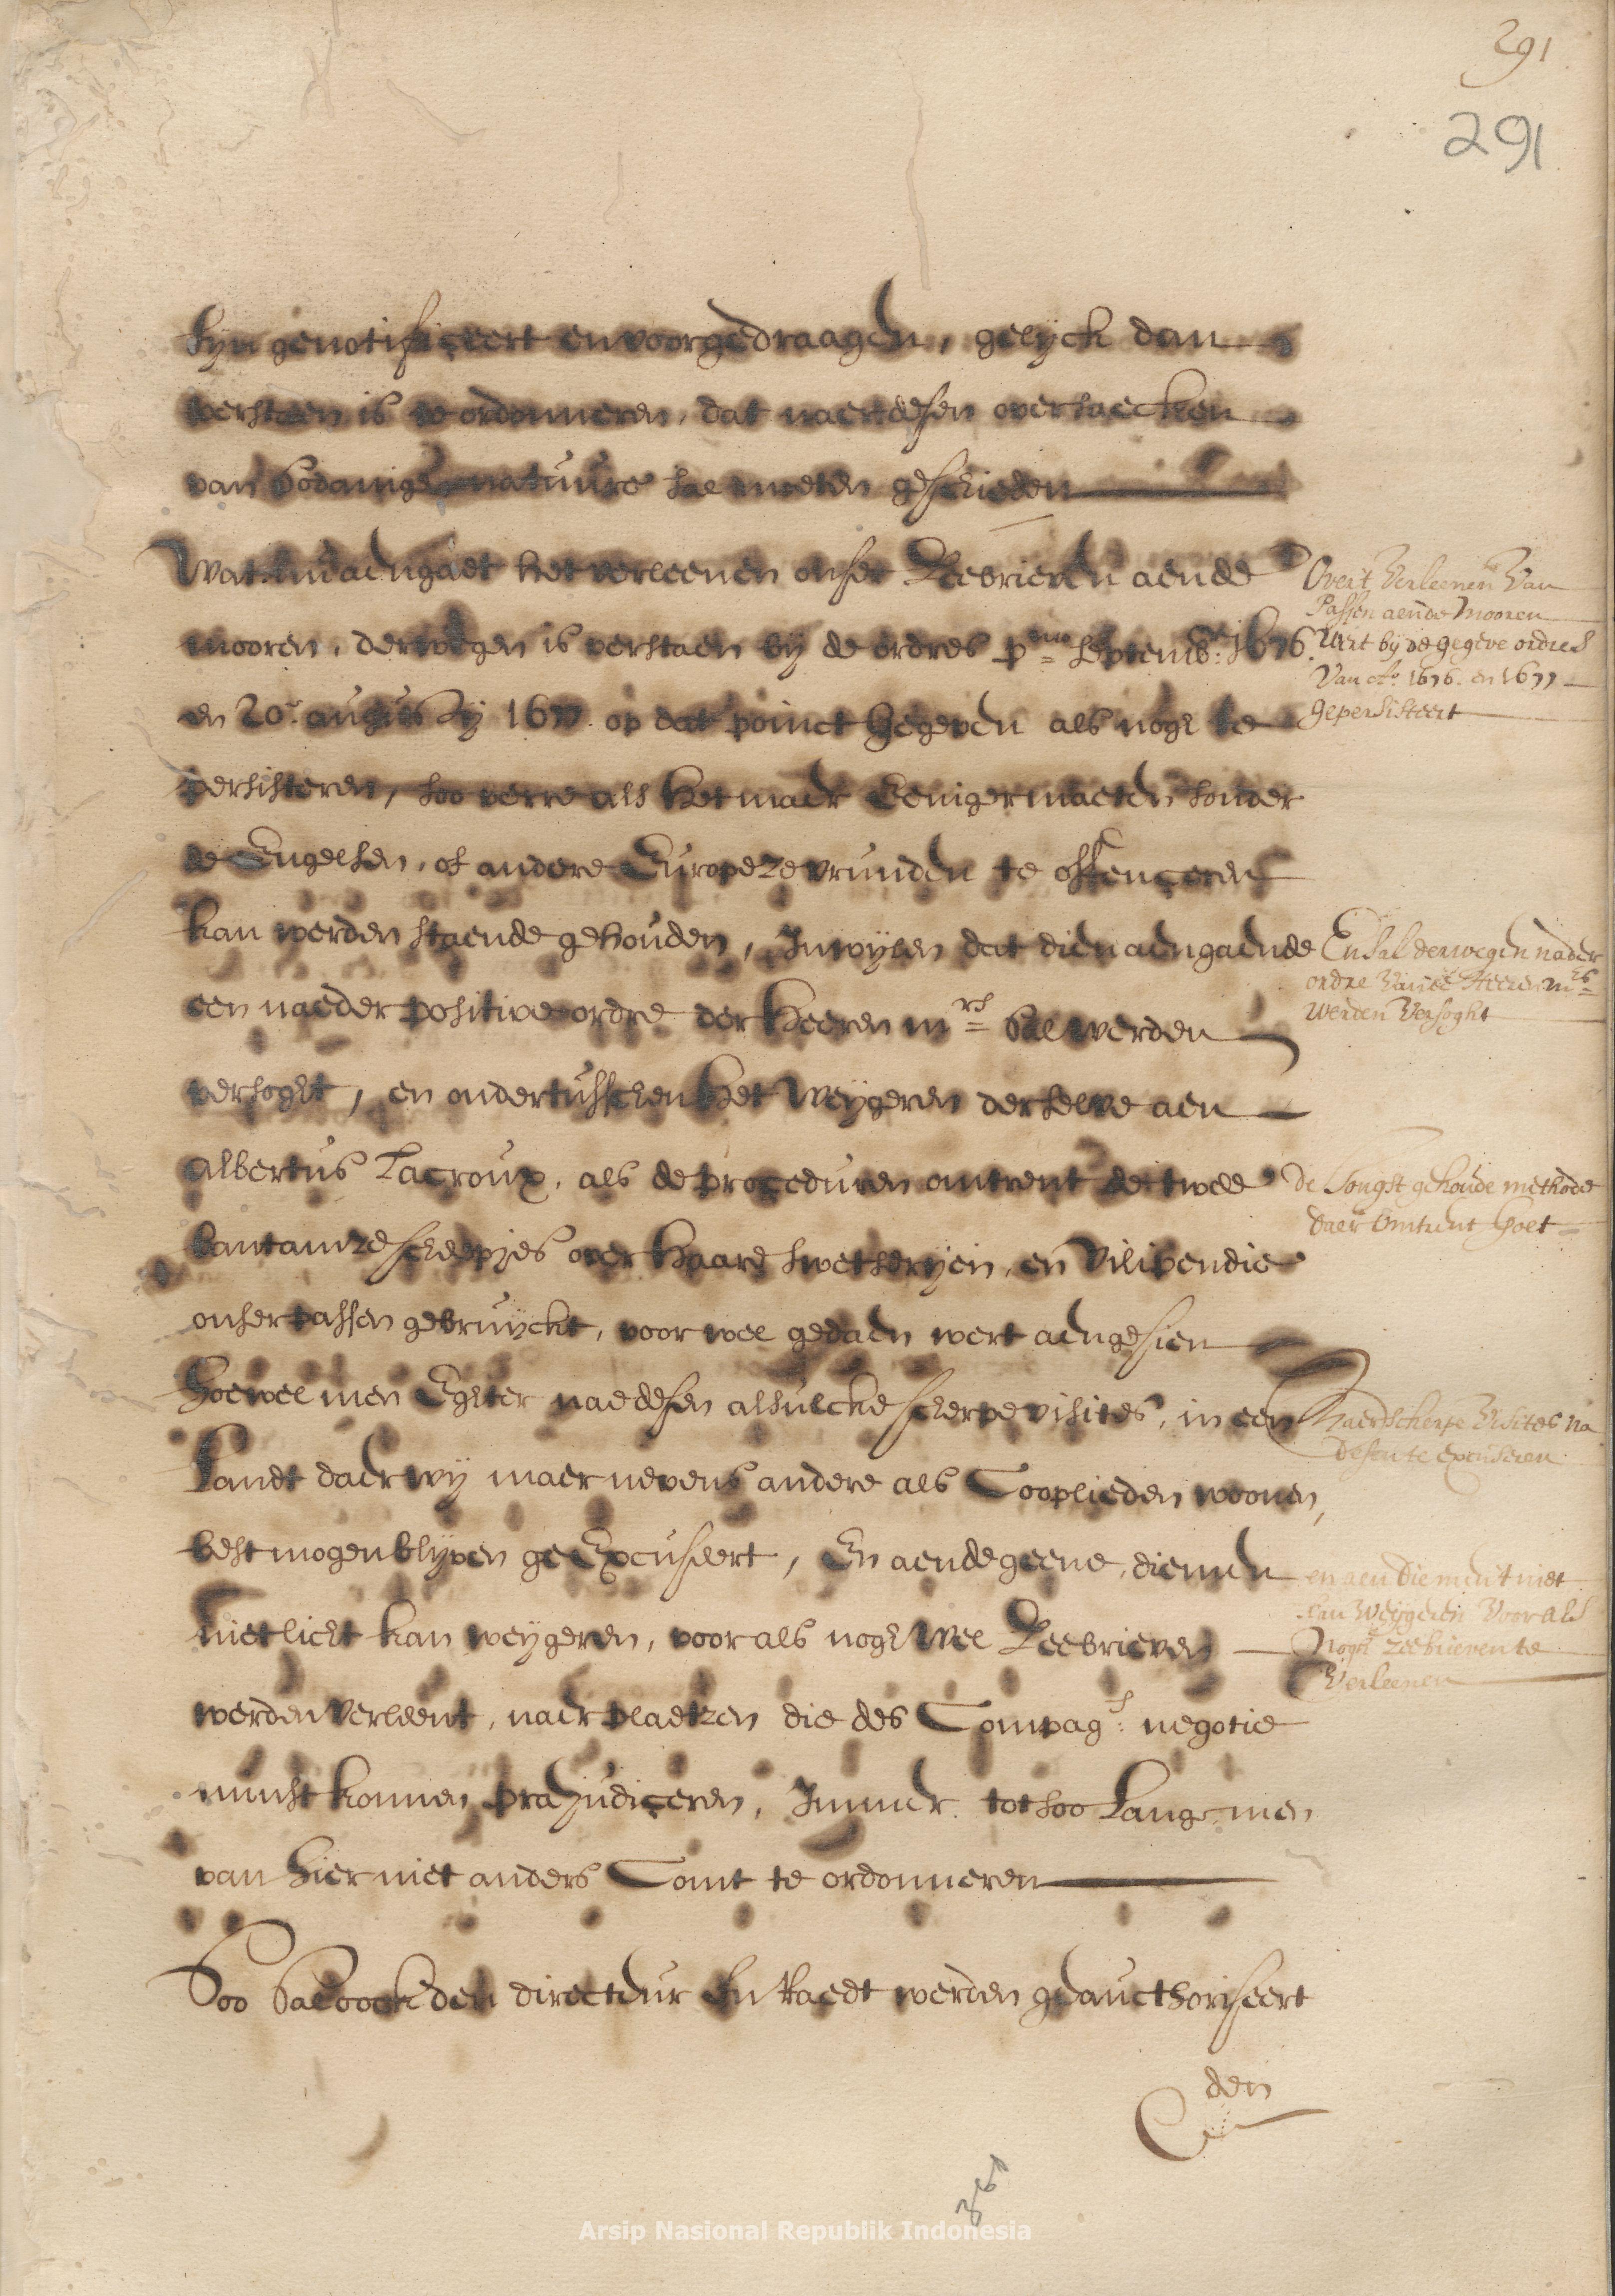 291
291
sijn genotificeert en voorgedraagen, gelijck dan
verstaen is te ordonneren, dat naer desen over saecken
van sodanige natuure sal moeten geschieden
Wat nu aengaet het verleenen onser Zeebrieven aen de
mooren, derwegen is verstaen bij de ordres p.mo Septemb.r 1676
en 20.e augusty 1677. op dat poinct gegeven als nogh te
persisteren, soo verre als het maer Eenigermaeten sonder
de Engelsen, of andere Europeze vrunden te offenceren
kan werden staende gehouden, Inwijlen dat dien aengaende
een naeder positive ordre der Heeren m.rs Sal werden
versoght, en ondertusschen het Weijgeren derselve aen
Albertus Lacroux, als de proceduren omtrent de twee
bantamze scheepjes over haare swetserijen, en vilipendie
onser passen gebruijckt, voor wel gedaen wert aengesien
hoewel men Eghter nae desen alsulcke scherpe visites, in een
Landt daer wij maer nevens andere als Cooplieden woonen,
best mogen blijven geExcuseert, En aen de geene, die men
niet licht kan weijgeren, voor als nogh wel Zeebrieven
werden verleent, naer plaetzen die des Compag.s negotie
minst konnen præjudiceren, Immer tot soo Lange men
van hier niet anders Comt te ordonneren
Soo Sal oock den directeur En Raedt werden geaucthoriseert
den
Over't Verleenen Van
Passen aen de Mooren
Wert bij de gegeve ordres
Van A.o 1676. en 1677
gepersisteert
En sal derwegen nader
ordre Van de Heeren m.rs
werden Versoght
De Jongst gehoude methode
daer Omtrent goet
Maer Scherpe Visites na
desen te excuseren
en aen die men't niet
kan Weijgeren Voor als
Nogh zeebrieven te
Verleenen
Arsip Nasional Republik Indonesia